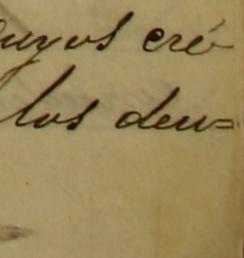 cuyos cré-
los deu=